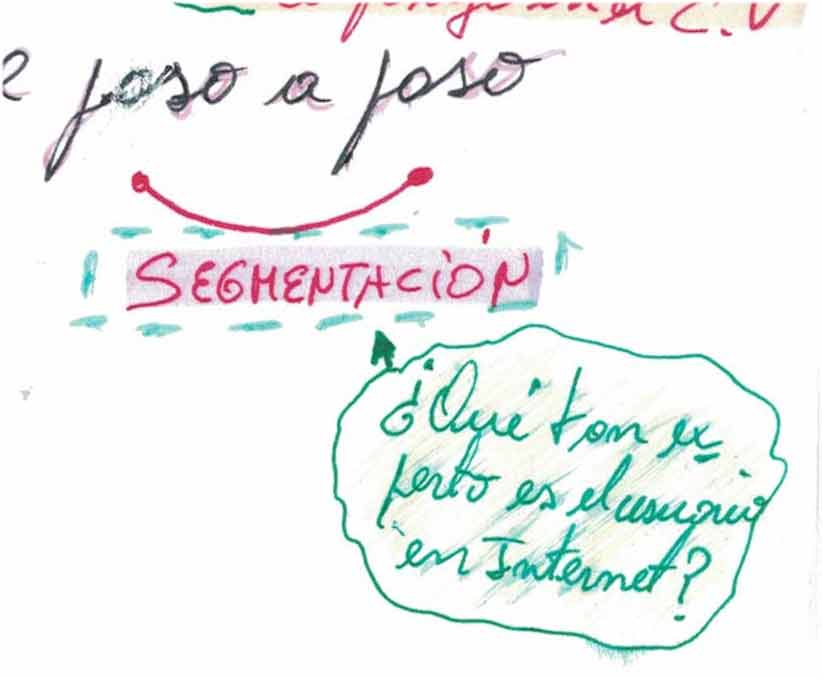 C.V
e paso a paso
SEGMENTACIÓN
¿Qué tan ex
perto es el usuario
en Internet?